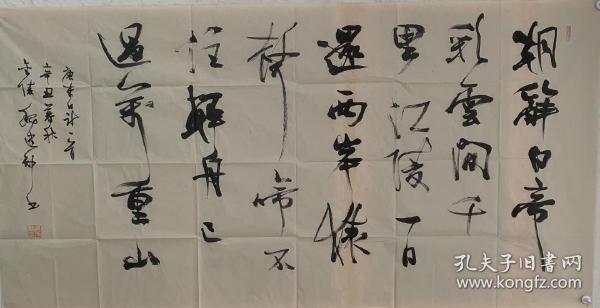 朝辞白帝
彩雲間千
里江陵一日
還兩岸猿
聲啼不
住輕舟已
過萬重山
唐李白诗一首
辛丑
孔夫子旧书网